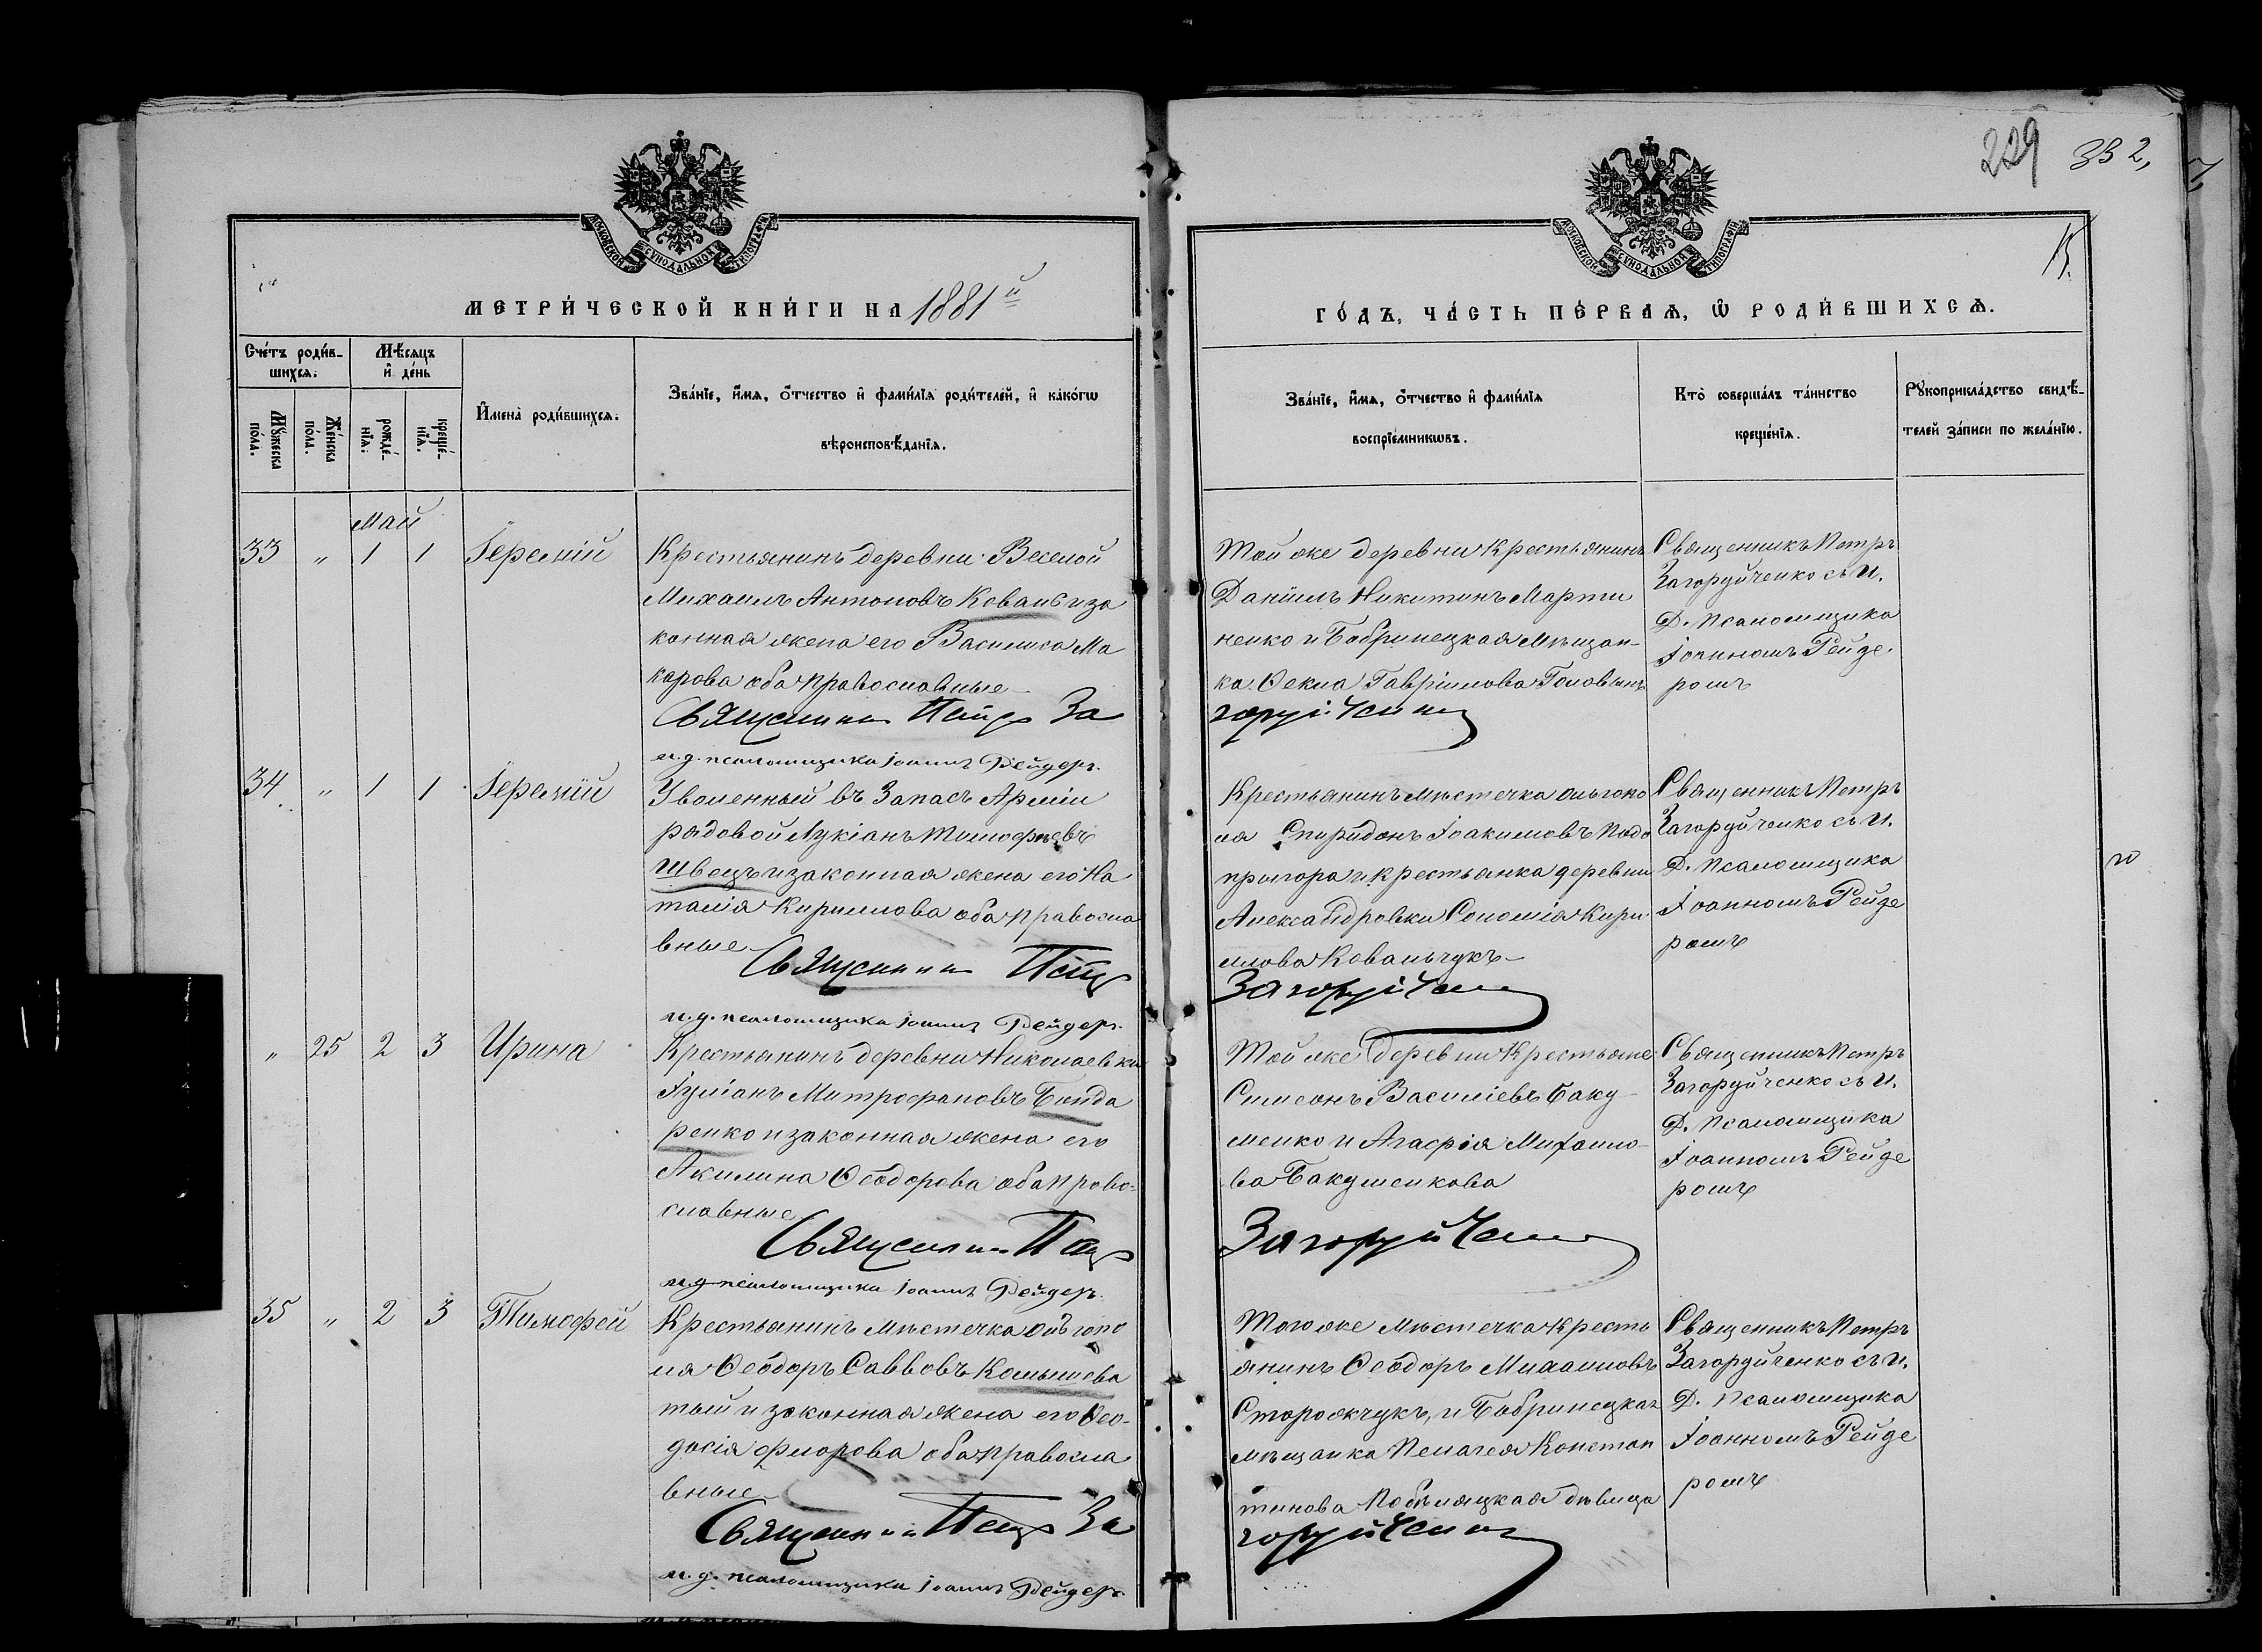 229 332,
13.
МОСКОВСКОЙ СѴНОДАЛЬНОЙ ТИПОГРАФІИ
МОСКОВСКОЙ СѴНОДАЛЬНОЙ ТИПОГРАФІИ
МЕТРИ́ЧЕСКОЙ КНИ́ГИ НА 1881й
ГО́ДЪ, ЧА́СТЬ ПЕ́РВАЯ, Ѡ РОДИ́ВШИХСЯ.
Сче́тъ роди́в-
шихся.
Мѣ́сяцъ
и де́нь
Мꙋ́жеска
по́ла.
Же́нска
по́ла.
рожде́-
нїя.
креще́-
нїя.
И́мена роди́вшихся.
Зва́нїе, и́мя, о́тчество и фами́лїя роди́телей, и како́гѡ
вѣроисповѣ́данїя.
Зва́нїе, и́мя, о́тчество и фами́лїя
воспрїе́мникѡвъ.
Кто̀ соверша́лъ та́инство
креще́нїя.
Рꙋкоприкла́дство свидѣ́-
телей за́писи по жела́нїю.
Май
33 " 1 1 Іеремій
Крестьянинъ деревни Веселой
Михаилъ Антоновъ Коваль и за
конная жена его Василиса Ма
карова оба православные
Священникъ Петръ За
и.д. псаломщика Іоаннъ Рейдеръ.
Той же деревни крестьянинъ
Даніилъ Никитинъ Марти
ненко и Бобринецкая мѣщан-
ка Ѳекла Гавріилова Головань
горуйченко
Священникъ Петръ
Загоруйченко съ И.
Д. Псаломщика
Іоанномъ Рейде
ромъ
34 " 1 1 Іеремій
Уволенный въ Запасъ Арміи
рядовой Лукіанъ Тимофѣевъ
Швецъ и законная жена его На
талія Кириллова оба правосла
вные
Священникъ Петръ
и.д. псаломщика Іоаннъ Рейдеръ.
Крестьянинъ мѣстечка Ольгопо
ля Спиридонъ Іоакимовъ Подо
пригора и крестьянка деревни
Александровки Соломія Кири
ллова Ковальчукъ
Загоруйченко
Священникъ Петръ
Загоруйченко съ И.
Д. Псаломщика
Іоанномъ Рейде
ромъ
" 25 2 3 Ирина
Крестьянинъ деревни Николаевки
Іуліанъ Митрофановъ Бонда
ренко и законная жена его
Акилина Ѳеодорова оба право-
славные
Священникъ Петръ
и.д. псаломщика Іоаннъ Рейдеръ.
Той же деревни Крестьяне
Симеонъ Василіевъ Баку
менко и Агафія Михаило-
ва Бакуменкова
Загоруйченко
Священникъ Петръ
Загоруйченко съ И.
Д. Псаломщика
Іоанномъ Рейде
ромъ
35 " 2 3 Тимофей
Крестьянинъ мѣстечка Ольгопо
ля Ѳеодоръ Саввовъ Комышева
тый и законная жена его Ѳео-
досія Флорова оба правосла
вные
Священникъ Петръ За
и.д. псаломщика Іоаннъ Рейдеръ.
Того же мѣстечка Кресть
янинъ Ѳеодоръ Михаиловъ
Сторожукъ, и Бобринецкая
мѣщанка Пелагея Констан
тинова дѣвица
горуйченко
Священникъ Петръ
Загоруйченко съ И.
Д. Псаломщика
Іоанномъ Рейде
ромъ